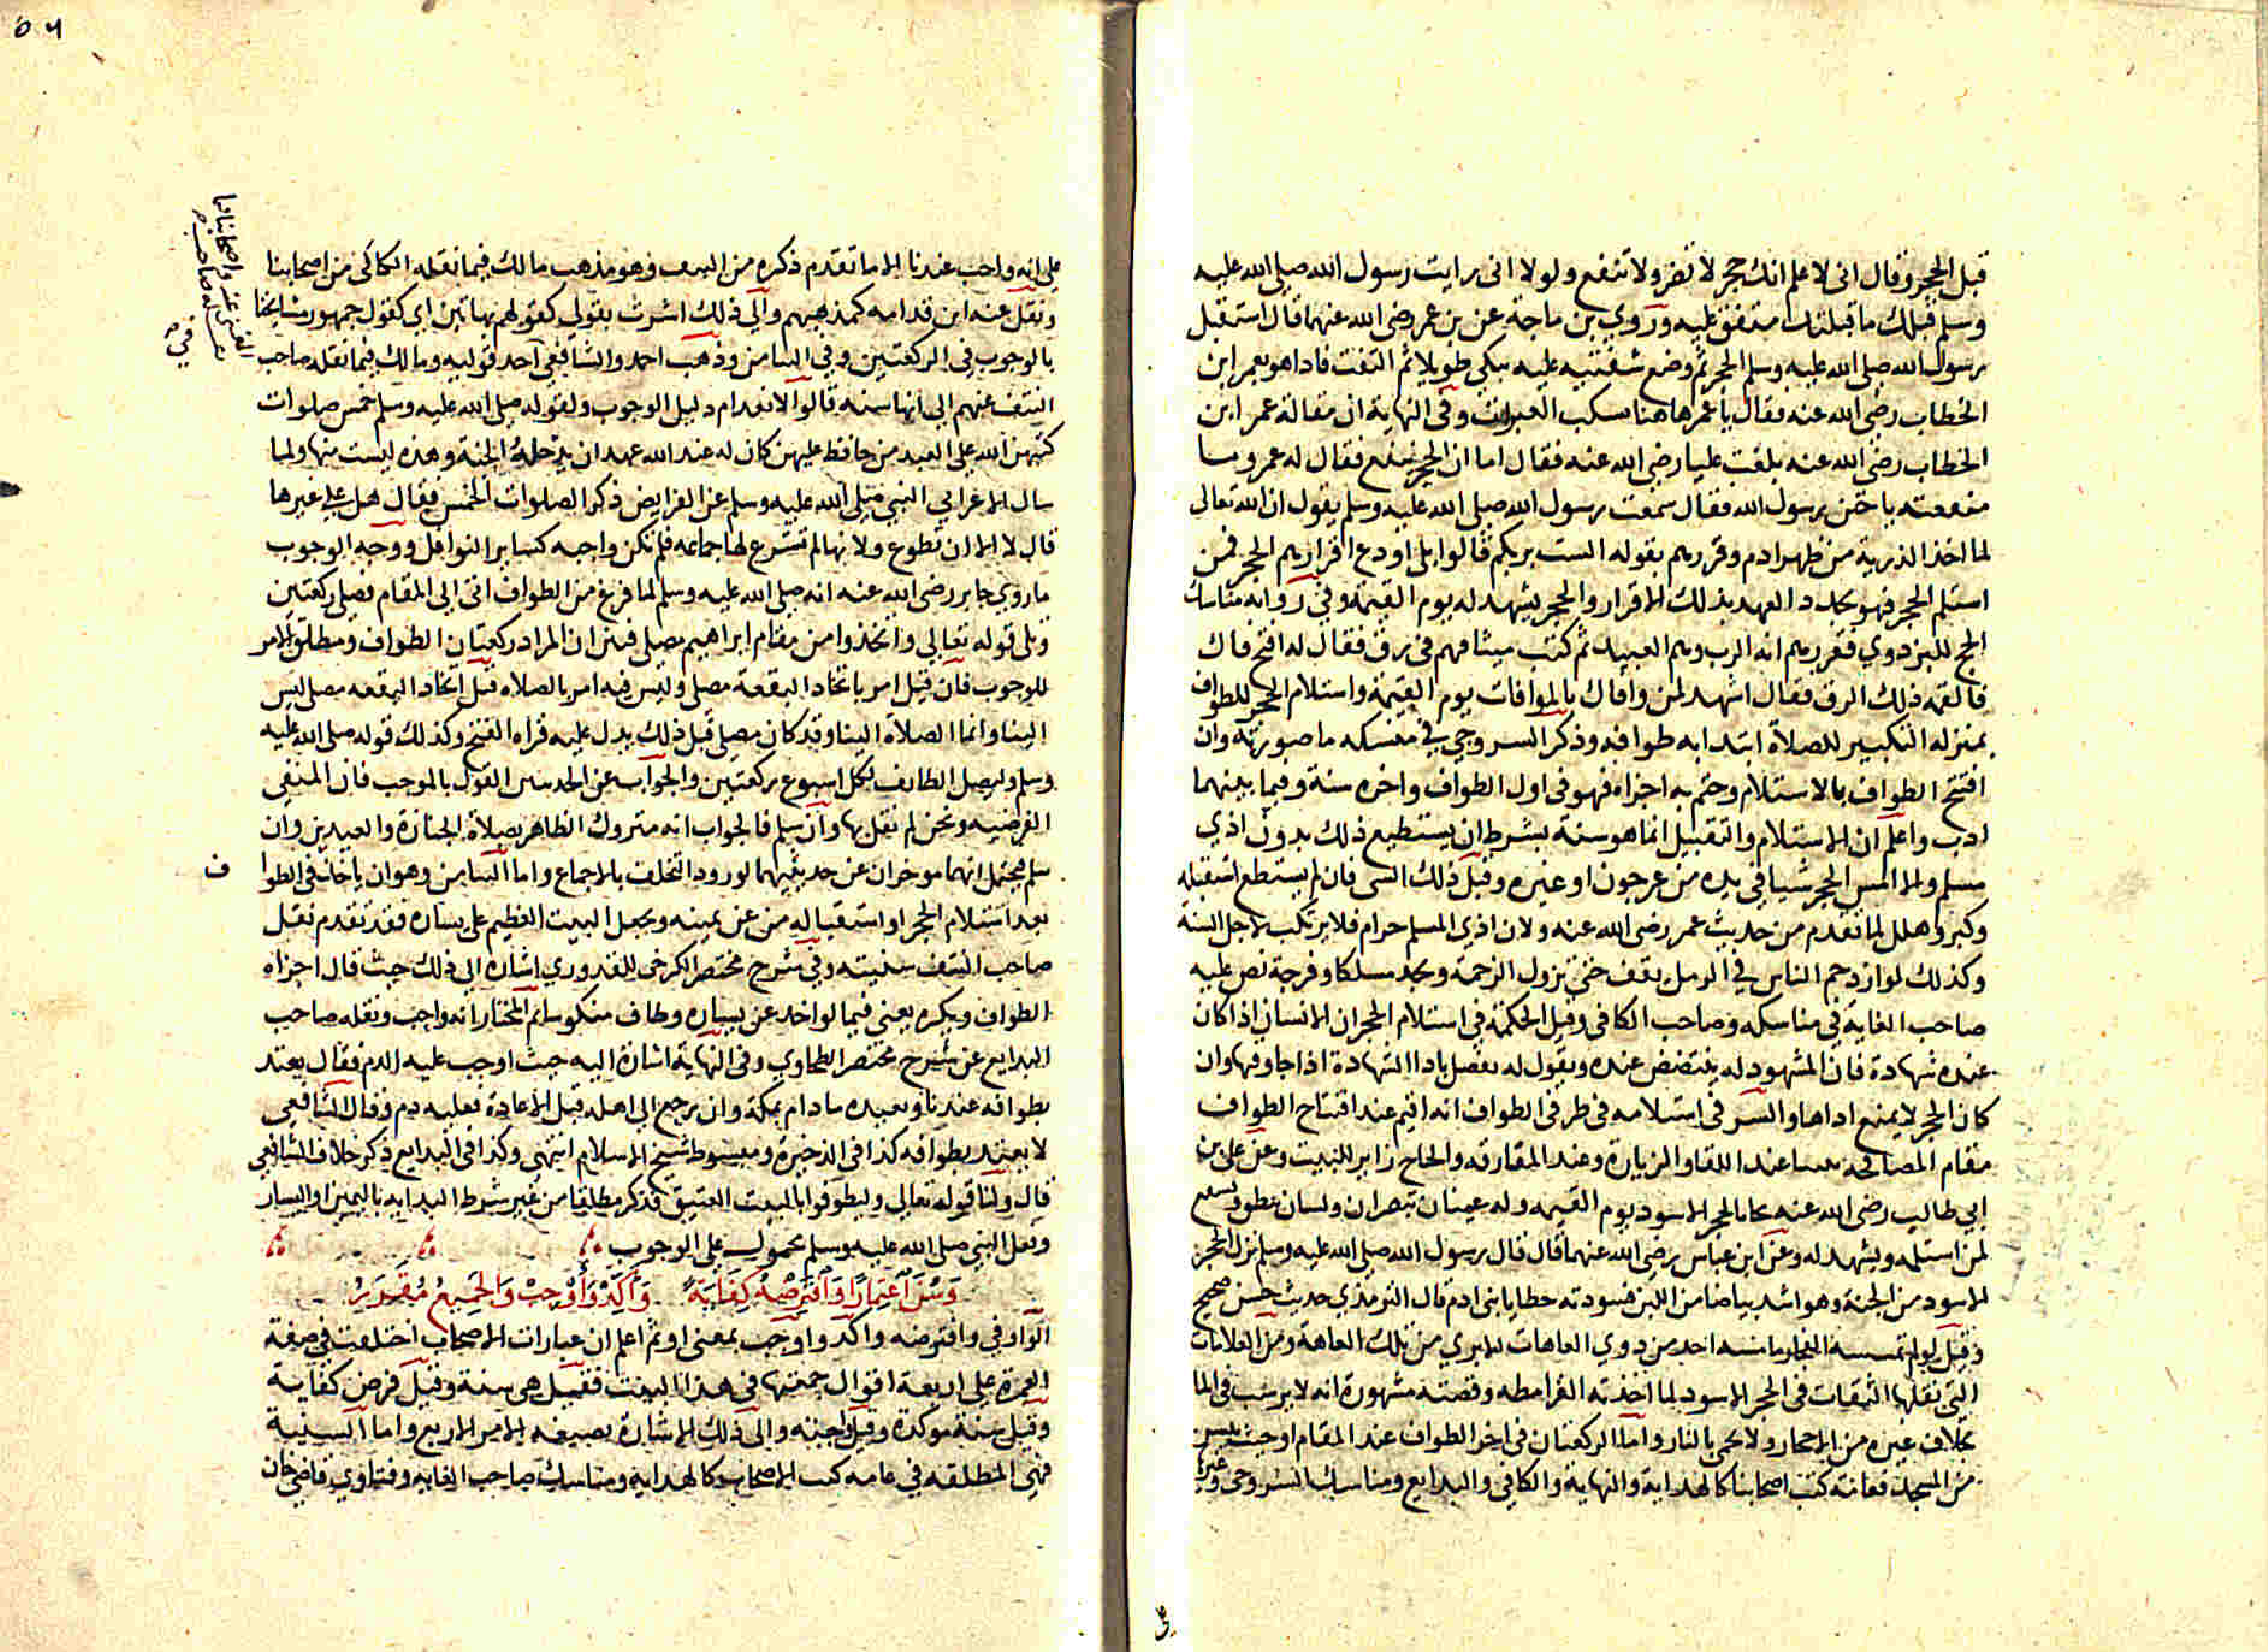 قبل الحجر وقال انى لاعلم انك حجر لا تضر ولا تنفع ولولا انى رايت رسول الله صلى الله عليه
وسلم قبلك ما قبلتك متفق عليه وروي بن ماجة عن بن عمر رضى الله عنهما قال استقبل
رسول الله صلى الله عليه وسلم الحجر ثم وضع شفتيه عليه يبكى طويلا ثم التفت فاذا هو بعمر ابن
الخطاب رضى الله عنه فقال يا عمر هاهنا سكب العبرات وفى النهاية ان مقالة عمر ابن
الخطاب رضى الله عنه بلغت عليا رضى الله عنه فقال اما ان الحجر ينفع فقال له عمر وما
منفعته يا ختن رسول الله فقال سمعت رسول الله صلى الله عليه وسلم يقول ان الله تعالى
لما اخذ الذرية من ظهر ادم وقررهم بقوله الست بربكم قالوا بلى اودع اقرارهم الحجر فمن
استلم الحجر فهو يجدد العهد بذلك الاقرار والحجر يشهد له يوم القيمة وفى رواية مناسك
الحج للبزدوي فقررهم انه الرب وهم العبيد ثم كتب ميثاقهم فى رق فقال له افتح فاك
فالقمه ذلك الرق فقال اشهد لمن وافاك بالموافات يوم القيمة واستلام الحجر للطواف
بمنزلة التكبير للصلاة ابتدابه طوافه وذكر السروجي في منسكه ما صورته وان
افتتح الطواف بالاستلام وختم به اجزاه فهو فى اول الطواف واخره سنة وفيما بينهما
ادب واعلم ان الاستلام والتقبيل انما هو سنة بشرط ان يستطيع ذلك بدون اذي
مسلم والا المس الحجر شيا في يده من عرجون او غيره وقبل ذلك الشى فان لم يستطع استقبله
وكبر وهلل لما تقدم من حديث عمر رضى الله عنه ولان اذي المسلم حرام فلا يرتكب لاجل السنة
وكذلك لو ازدحم الناس في الرمل يقف حتى تزول الزحمة ويجد مسلكا وفرجة نص عليه
صاحب الغاية في مناسكه وصاحب الكافى وقيل الحكمة في استلام الحجر ان الانسان اذا كان
عنده شهادة فان المشهود له عنده ويقول له تفضل باداالشهادة اذا جا وقتها وان
كان الحجر لا يمنع اداها والسر فى استلامه فى طرفى الطواف انه اقيم عند افتتاح الطواف
مقام المصافحة عند اللقا والزيارة وعند المفارقه والحاج زاير للبيت وعن على بن
ابي طالب رضى الله عنه يجا بالحجر الاسود يوم القيمه وله عينان تبصران ولسان ينطق ويشهد
لمن استلمه ويشهد له وعن ابن عباس رضى الله عنهما قال قال رسول الله صلى الله عليه وسلم نزل الحجر
الاسود من الجنة وهو اشد بياضا من اللبن فسودته خطايا بنى ادم قال الترمذي حديث حسن صحيح
وقيل لو لم تمسسه ما مسه احد من ذوي العاهات الا بري من تلك العاهة ومن العلامات
التى نقلها الثقات فى الحجر الاسود لما اخذته القرامطه وقصته مشهورة انه لا يرسب فى الما
بخلاف غيره من الاحجار ولا يحمى بالنار واما الركعتان فى اخر الطواف عند المقام او حيث تيسر
من المسجد فعامة كتب اصحابنا كالهداية والنهاية والكافى والبدايع ومناسك السروجى وغيرها
على
٥٦
على انه واجب عندنا الا ما تقدم ذكره من النتف وهو مذهب مالك فيما نقله الكاكى من اصحابنا
ونقل عنه ابن قدامه كمذهبهم والى ذلك اشرت بقولى كقولهم بهاتين اي كقول جمهور مشايخنا
بالوجوب فى الركعتين وفى التيامن وذهب احمد والشافعى احد قوليه ومالك فيما نقله صاحب
النتف عنهم الى انها سنه قالوا لانعدام دليل الوجوب ولقوله صلى الله عليه وسلم خمس صلوات
كتبهن الله على العبد من حافظ عليهن كان له عند الله عهد ان يدخله الجنة وهذه ليست منها ولما
سال الاعرابي النبي صلى الله عليه وسلم عن الفرايض ذكر الصلوات الخمس فقال هل علي غيرها
قال لا الا ان تطوع ولانها لم تشرع لها جماعه فلم تكن واجبه كساير النوافل ووجه الوجوب
ما روي جابر رضى الله عنه انه صلى الله عليه وسلم لما فرغ من الطواف اتى الى المقام فصلى ركعتين
وتلى قوله تعالى واتخذوا من مقام ابراهيم مصلى فبين ان المراد ركعتان الطواف ومطلق الامر
للوجوب فان قيل امر باتخاد البقعة مصلى وليس فيه امر بالصلاه قيل اتخاد البقعه مصلى ليس
الينا وانما الصلاة الينا وقد كان مصلى قبل ذلك يدل عليه قراه الفتح وكذلك قوله صلى الله عليه
وسلم وليصل الطايف لكل اسبوع ركعتين والجواب عن الحديثين القول بالموجب فان المنفى
الفرضيه ونحن لم نقل بها وان سلم فالجواب انه متروك الظاهر بصلاة الجنازة والعيدين وان
سلم فيحتمل انهما موخران عن حديثيهما لورود التخلف بالاجماع واما التيامن وهو ان ياخذ فى الطوا
ف
بعد استلام الحجر او استقباله من عن يمينه ويجعل البيت العظيم على يساره فقد تقدم نقل
صاحب النتف سنيته وفى شرح مختصر الكرخى للقدوري اشارة الى ذلك حيث قال اجزاه
الطواف ويكره يعنى فيما لو اخذ عن يساره وطاف منكوسا ثم المختار انه واجب ونقله صاحب
البدايع عن شرح مختصر الطحاوي وفى النهاية اشارة اليه حيث اوجب عليه الدم فقال يعتد
بطوافه عندنا ويعيده مادام بمكة وان رجع الى اهله قبل الاعادة فعليه دم وقال الشافعى
لا يعتد بطوافه كذا فى الذخيرة ومبسوط شيخ الاسلام انتهى وكذا فى البدايع ذكر خلاف الشافعى
قال ولنا قوله تعالى وليطوفوا بالبيت العتيق فذكر مطلقا من غير شرط البدايه باليمين او اليسار
وفعل النبي صلى الله عليه وسلم محمول على الوجوب
وَسُنَّ اعْتِمَارًا وَافْتَرِضْهُ كِفَايَةً وَأَكِّدْ وَأَوْجِبْ وَالجَمِيعُ مُقَرَّرُ
الواو في وافترضه واكد واوجب بمعنى او ثم اعلم ان عبارات الاصحاب اختلفت في صفة
العمرة على اربعة اقوال جمعتها فى هذا البيت فقيل هى سنة وقيل فرض كفاية
وقيل سنة موكدة وقيل واجبة والى ذلك الاشارة بصيغه الامر الاربع واما السنية
فهى المطلقه فى عامه كتب الاصحاب كالهداية ومناسك صاحب الغايه وفتاوي قاضى خان